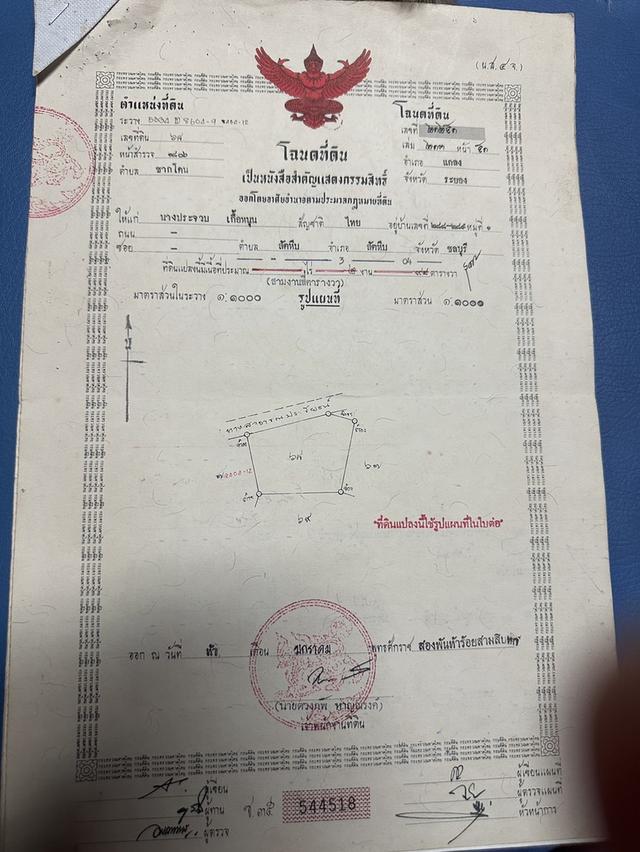 (น.ส. ๔ จ.)
ตำแหน่งที่ดิน
ระวาง
เลขที่ดิน ๖๘
หน้าสำรวจ
ตำบล ชากโดน
โฉนดที่ดิน
เลขที่
เล่ม ๒๓๓ หน้า ๕๓
อำเภอ แกลง
จังหวัด ระยอง
โฉนดที่ดิน
เป็นหนังสือสำคัญแสดงกรรมสิทธิ์
ออกโดยอาศัยอำนาจตามประมวลกฎหมายที่ดิน
ให้แก่ นางประจวบ เกื้อหนุน สัญชาติ ไทย อยู่บ้านเลขที่ หมู่ที่ ๑
ถนน –
ซอย – ตำบล สัตหีบ อำเภอ สัตหีบ จังหวัด ชลบุรี
– 3 04
ที่ดินแปลงนี้มีเนื้อที่ประมาณ ไร่ ๒ งาน ๙๘ ตารางวา
(สามงานสี่ตารางวา)
มาตราส่วนในระวาง ๑:๑๐๐๐ รูปแผนที่ มาตราส่วน ๑:๑๐๐๐
น
ทางสาธารณประโยชน์
๖๘
๖๗
๖๙
"ที่ดินแปลงนี้ใช้รูปแผนที่ในใบต่อ"
ออก ณ วันที่ ห้า เดือน มกราคม พุทธศักราช สองพันห้าร้อยสามสิบ
เจ้าพนักงานที่ดิน
ผู้เขียน
ผู้ทาน
ผู้ตรวจ
ข. ๓๕
544518
ผู้เขียนแผนที่
ผู้ตรวจแผนที่
หัวหน้าการ